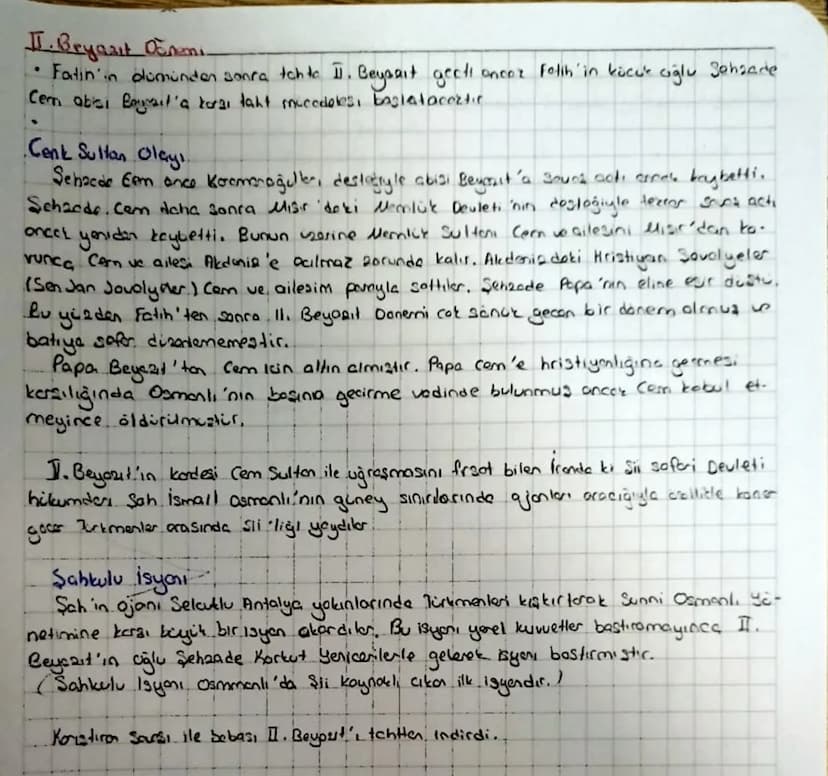 II. Beyazıt Dönemi
• Fatih'in ölümünden sonra tahta II. Beyazıt geçti ancak Fatih'in küçük oğlu Şehzade
Cem abisi Beyazıt'a karşı taht mücadelesi başlatacaktır
•
Cem Sultan Olayı
Şehzade Cem önce Karamanoğulları desteğiyle abisi Beyazıt'a savaş açtı ancak kaybetti.
Şehzade Cem daha sonra Mısır'daki Memlük Devleti'nin desteğiyle tekrar savaş açtı
ancak yeniden kaybetti. Bunun üzerine Memlük Sultanı Cem ve ailesini Mısır'dan ko-
vunca Cem ve ailesi Akdeniz'e açılmaz zorunda kalır. Akdenizdeki Hristiyan Şovalyeler
(Sen Jan Şovalyeler) Cem ve ailesini parayla sattılar. Şehzade Papa'nın eline esir düştü.
Bu yüzden Fatih'ten sonra II. Beyazıt Dönemi çok sönük geçen bir dönem olmuş ve
batıya sefer düzenlememeştir.
Papa Beyazıt'tan Cem için altın almıştır. Papa Cem'e hristiyanlığına geçmesi
karşılığında Osmanlı'nın başına geçirme vadinde bulunmuş ancak Cem kabul et-
meyince öldürülmüştür.
II. Beyazıt'ın kardeşi Cem Sultan ile uğraşmasını fırsat bilen İranda ki Şii Safavi Devleti
hükümdarı Şah İsmail Osmanlı'nın güney sınırlarında ajanları aracığıyla özellikle konar
göçer Türkmenler arasında Şii'liği yaydılar
Şahkulu İsyanı
Şah'ın ajanı Selçuklu Antalya yakınlarında Türkmenleri kışkırtarak Sunni Osmanlı yö-
netimine karşı büyük bir isyan çıkardılar. Bu isyanı yerel kuvvetler bastıramayınca II.
Beyazıt'ın oğlu Şehzade Korkut yeniçerilerle gelerek isyanı bastırmıştır.
(Şahkulu İsyanı Osmmanlı'da Şii kaynaklı çıkan ilk isyandır.)
savaşı ile babası II. Beyazıt'ı tahttan indirdi.